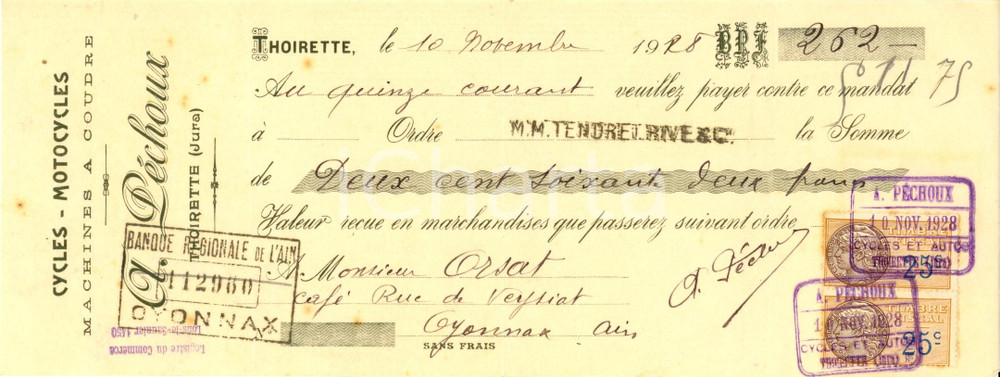 CYCLES - MOTOCYCLES
MACHINES A COUDRE
A. Péchoux
THOIRETTE (Jura)
THOIRETTE, le 10 Novembre 1928 BPF 262 —
75
Au quinze courant veuillez payer contre ce mandat
à Ordre M.M. TENDRET, RIVE & C. la Somme
de Deux cent soixante deux francs
Valeur reçue en marchandises que passerez suivant ordre
A. Péchoux
A Monsieur Orsat
Café Rue de Veyziat
Oyonnax Ain
SANS FRAIS
BANQUE REGIONALE DE L'AIN
112960
OYONNAX
Registre du Commerce
Lons-le-Saunier 1450
A. PÉCHOUX
10 NOV. 1928
CYCLES ET AUTOS
THOIRETTE (JURA)
25c
A. PÉCHOUX
10 NOV. 1928
CYCLES ET AUTOS
THOIRETTE (JURA)
TIMBRE
FISCAL
25c